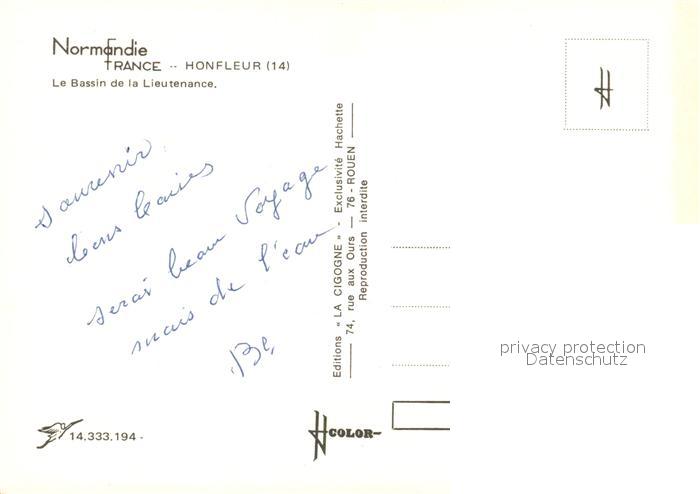 Normandie
FRANCE -- HONFLEUR (14)
Le Bassin de la Lieutenance.
souvenir
bons
beau voyage
mais de l'eau
Editions « LA CIGOGNE » - Exclusivité Hachette
74, rue aux Ours — 76 - ROUEN
Reproduction interdite
privacy protection
Datenschutz
14.333.194 -
COLOR